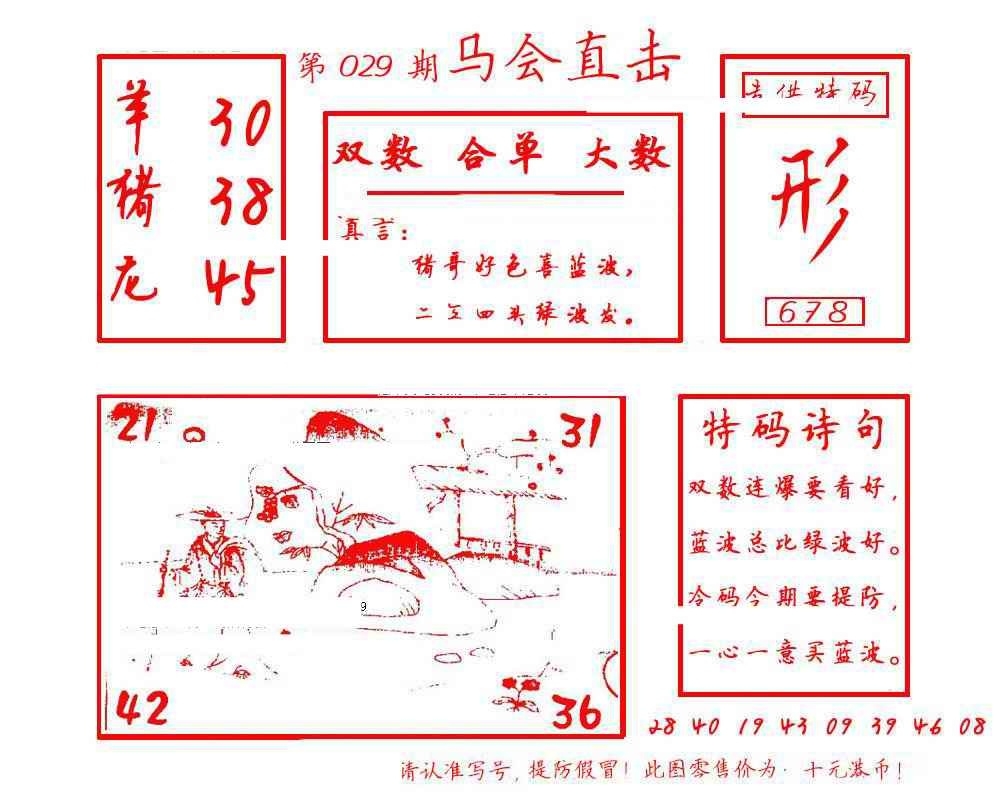 第 029 期 马会直击
羊 30
猪 38
龙 45
双数 合单 大数
真言：
猪哥好色喜蓝波，
二 四头绿波发。
供特码
形
678
21
31
9
42
36
特码诗句
双数连爆要看好，
蓝波总比绿波好。
冷码今期要提防，
一心一意买蓝波。
28 40 19 43 09 39 46 08
请认准写号，提防假冒！此图零售价为：十元港币！